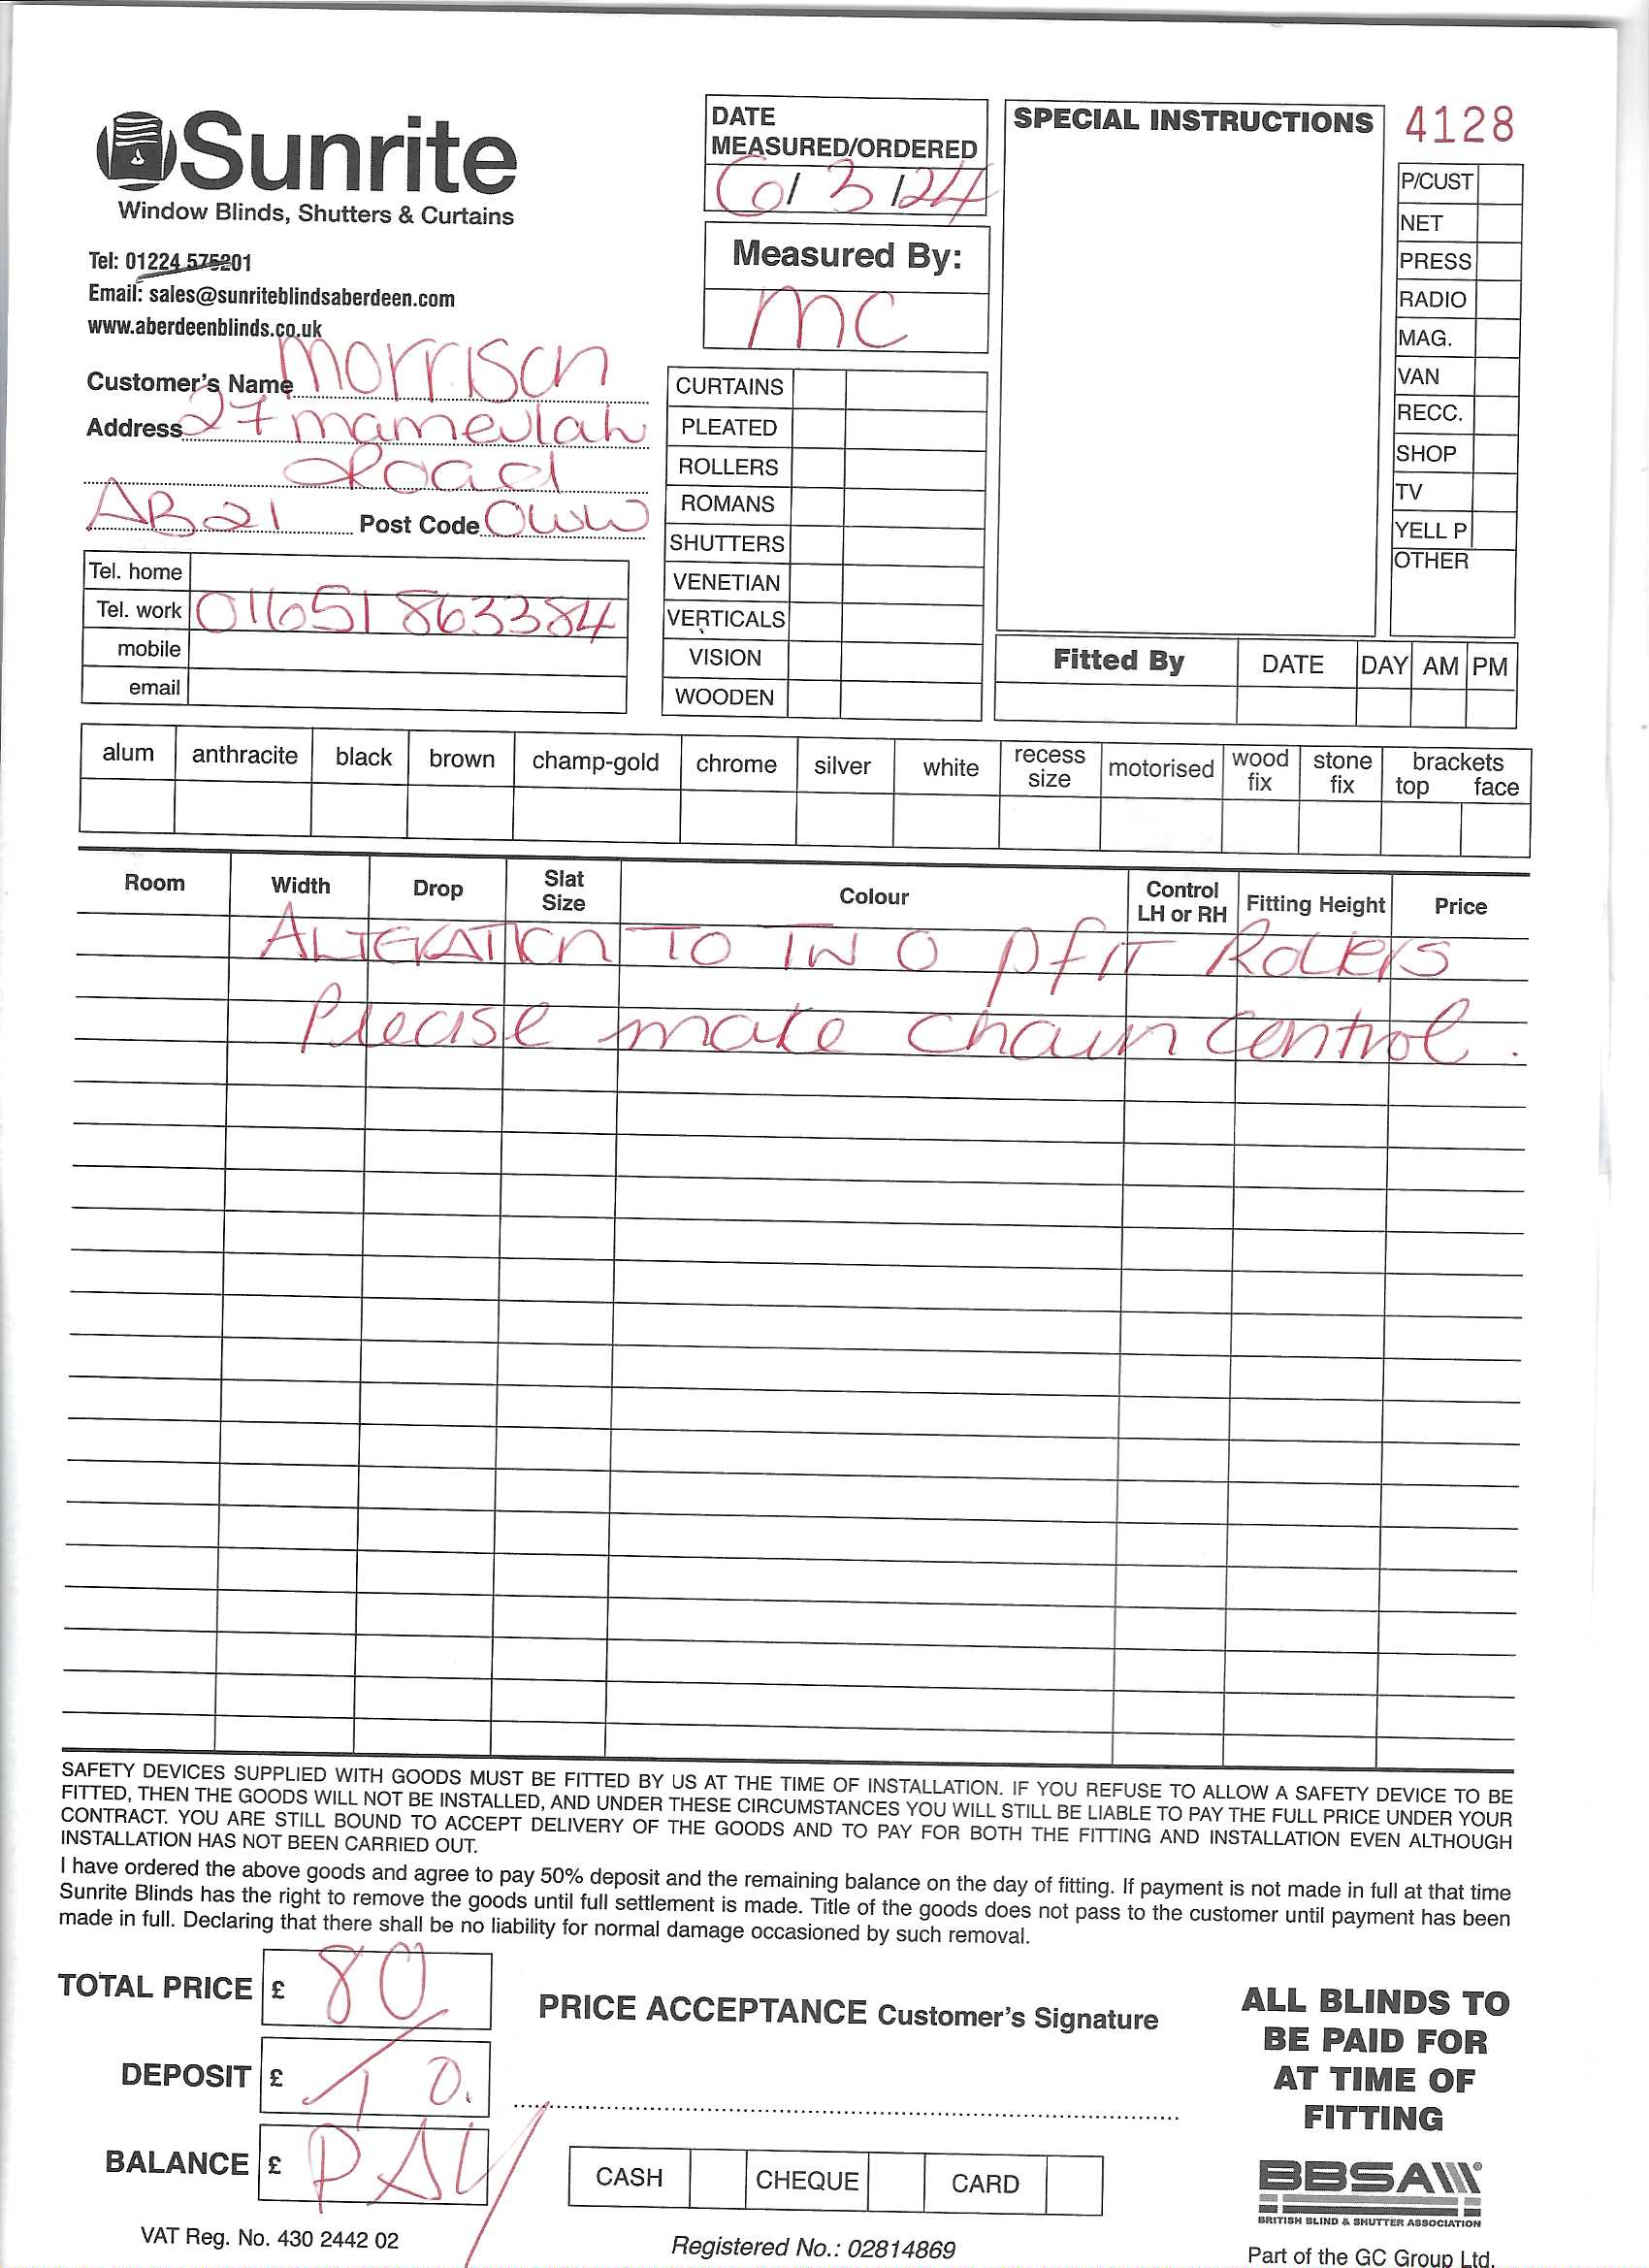 Sunrite
Window Blinds, Shutters & Curtains
Tel: 01224 575201
Email: sales@sunriteblindsaberdeen.com
www.aberdeenblinds.co.uk
Customer's Name Morrison
Address 27 Mameulah
Road
AB21 Post Code 0WW
Tel. home
Tel. work 01651 863384
mobile
email
DATE
MEASURED/ORDERED
6/3/24
Measured By:
MC
CURTAINS
PLEATED
ROLLERS
ROMANS
SHUTTERS
VENETIAN
VERTICALS
VISION
WOODEN
SPECIAL INSTRUCTIONS
4128
P/CUST
NET
PRESS
RADIO
MAG.
VAN
RECC.
SHOP
TV
YELL P
OTHER
Fitted By DATE DAY AM PM
alum anthracite black brown champ-gold chrome silver white recess size motorised wood fix stone fix brackets top face
Room Width Drop Slat Size Colour Control LH or RH Fitting Height Price
ALTERATION TO TWO Pfit Rollers
Please make chain control.
SAFETY DEVICES SUPPLIED WITH GOODS MUST BE FITTED BY US AT THE TIME OF INSTALLATION. IF YOU REFUSE TO ALLOW A SAFETY DEVICE TO BE
FITTED, THEN THE GOODS WILL NOT BE INSTALLED, AND UNDER THESE CIRCUMSTANCES YOU WILL STILL BE LIABLE TO PAY THE FULL PRICE UNDER YOUR
CONTRACT. YOU ARE STILL BOUND TO ACCEPT DELIVERY OF THE GOODS AND TO PAY FOR BOTH THE FITTING AND INSTALLATION EVEN ALTHOUGH
INSTALLATION HAS NOT BEEN CARRIED OUT.
I have ordered the above goods and agree to pay 50% deposit and the remaining balance on the day of fitting. If payment is not made in full at that time
Sunrite Blinds has the right to remove the goods until full settlement is made. Title of the goods does not pass to the customer until payment has been
made in full. Declaring that there shall be no liability for normal damage occasioned by such removal.
TOTAL PRICE £ 80
DEPOSIT £ TO
BALANCE £ PAY
PRICE ACCEPTANCE Customer's Signature
CASH CHEQUE CARD
ALL BLINDS TO
BE PAID FOR
AT TIME OF
FITTING
BBSA
BRITISH BLIND & SHUTTER ASSOCIATION
VAT Reg. No. 430 2442 02
Registered No.: 02814869
Part of the GC Group Ltd.